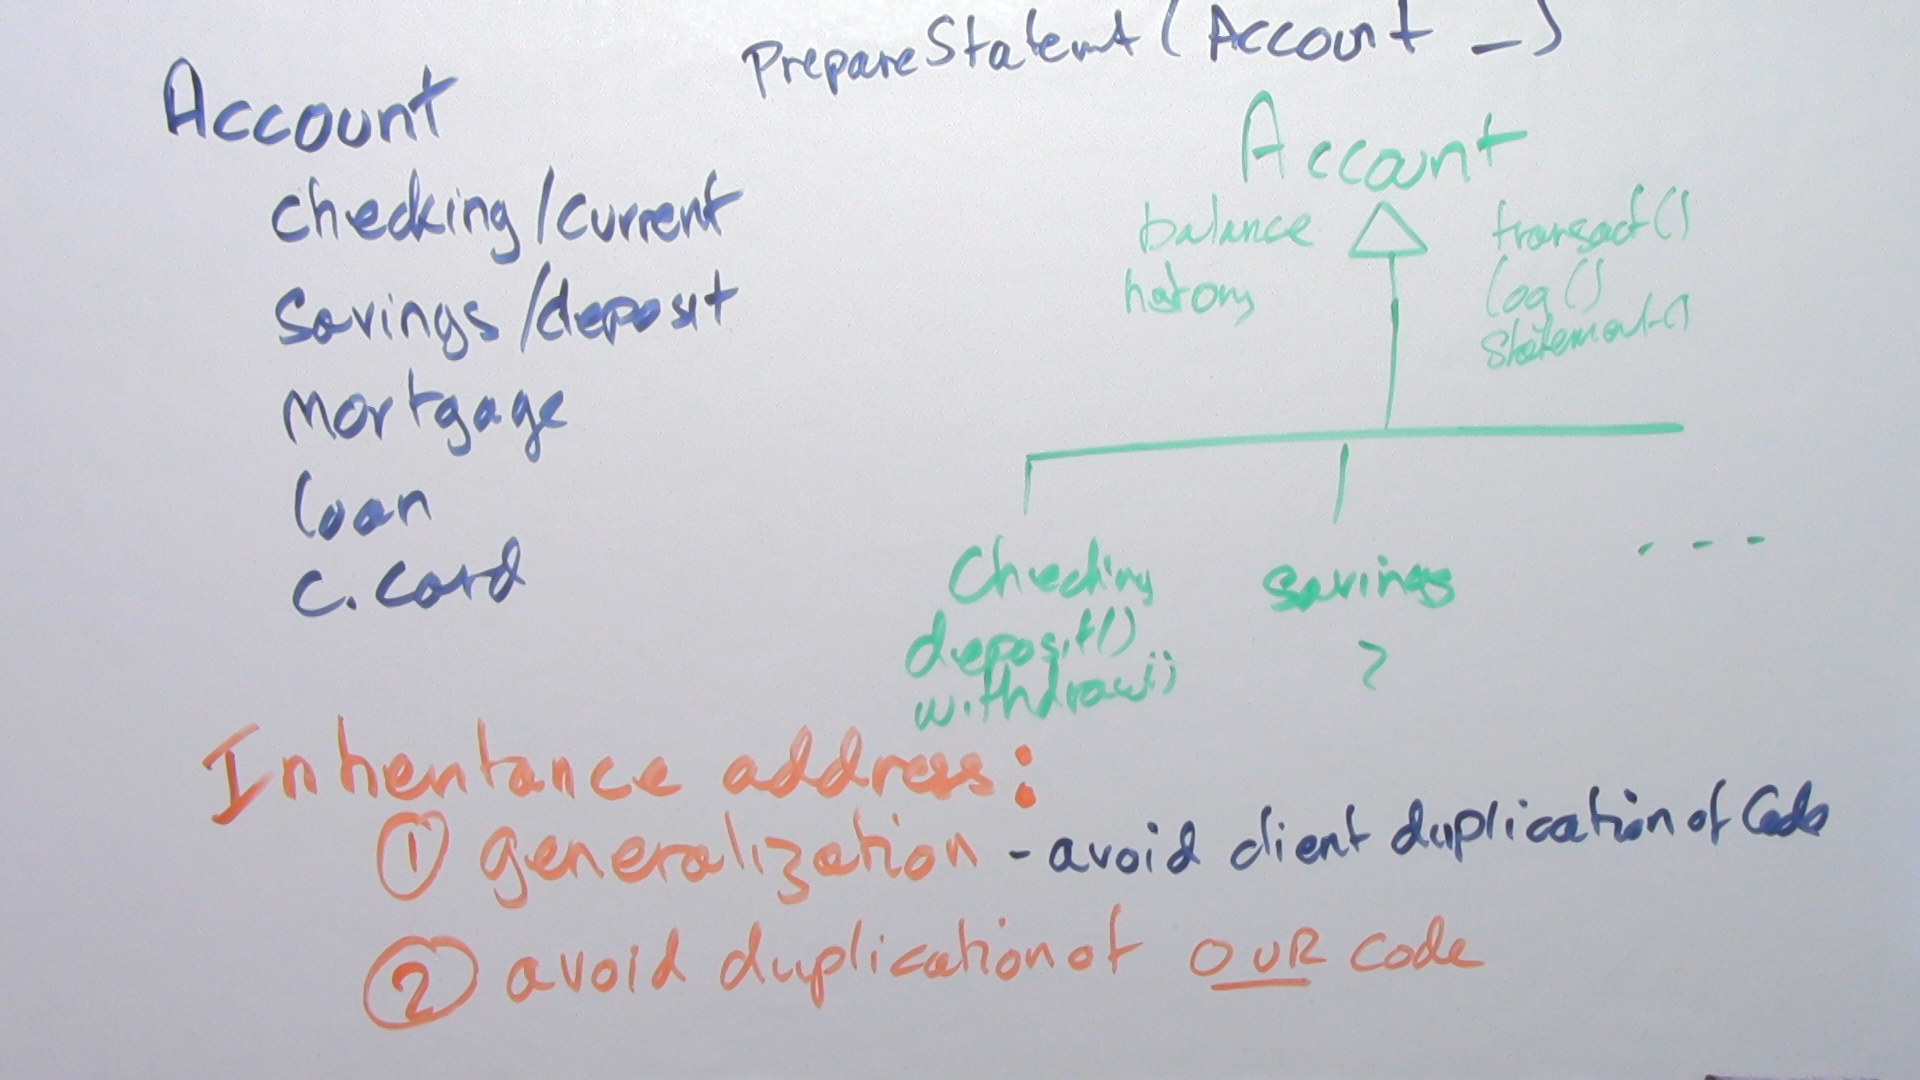 PrepareStatemt (Account _)
Account
checking/current
Savings/deposit
Mortgage
loan
C. Card
Account
balance
history
transact()
log()
Statement()
Checking
deposit()
withdraw()
Savings
?
....
Inheritance address:
① generalization - avoid client duplication of Code
② avoid duplication of OUR code